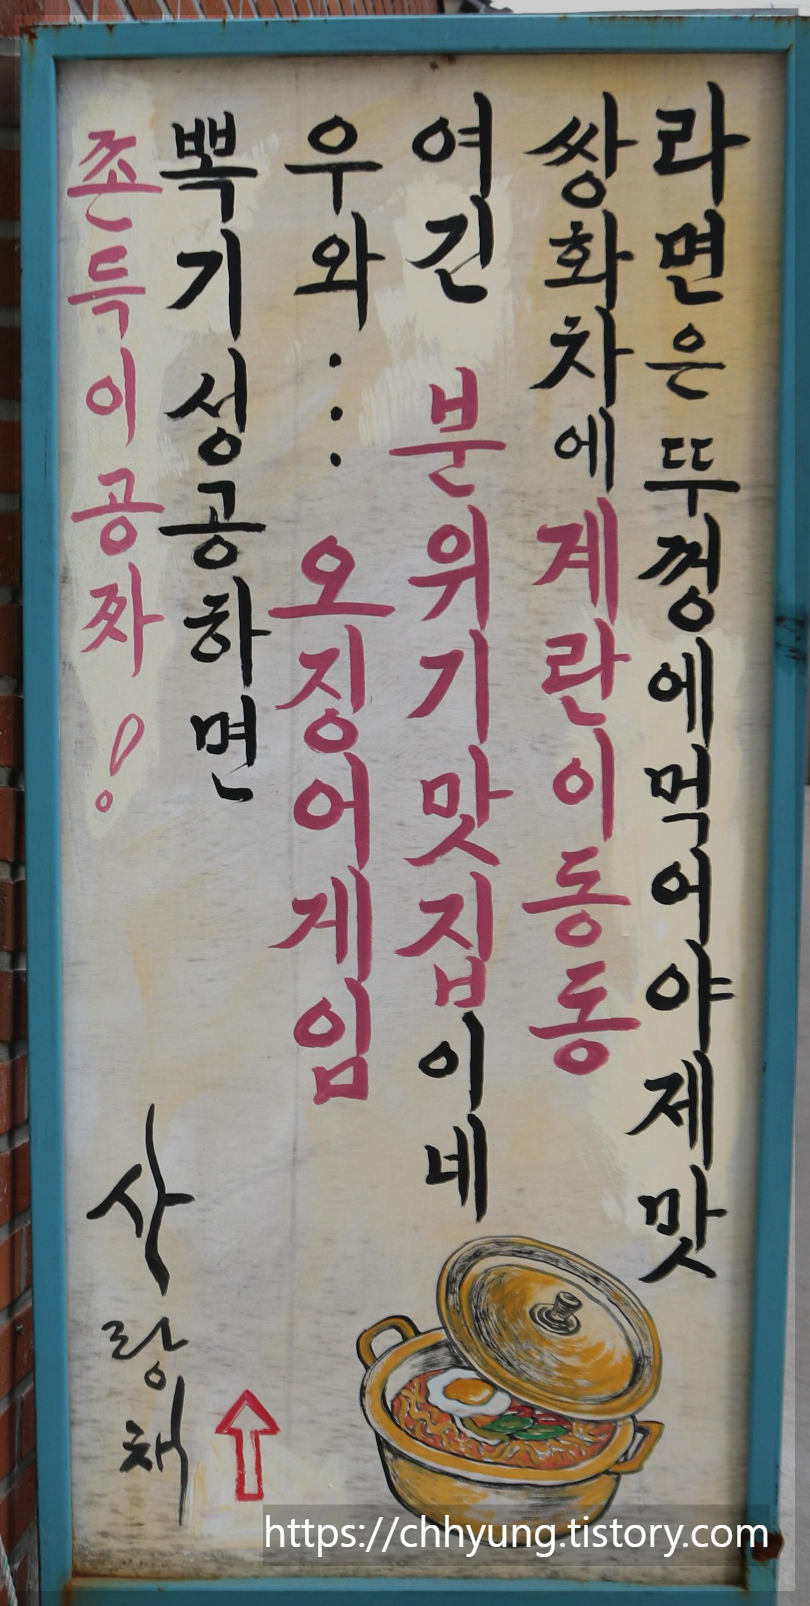 라면은 뚜껑에 먹어야 제맛
쌍화차에 계란이 동동
여긴 분위기 맛집이네
우와... 오징어게임
뽁기 성공하면
존득이 공짜!
사랑채
https://chhyung.tistory.com